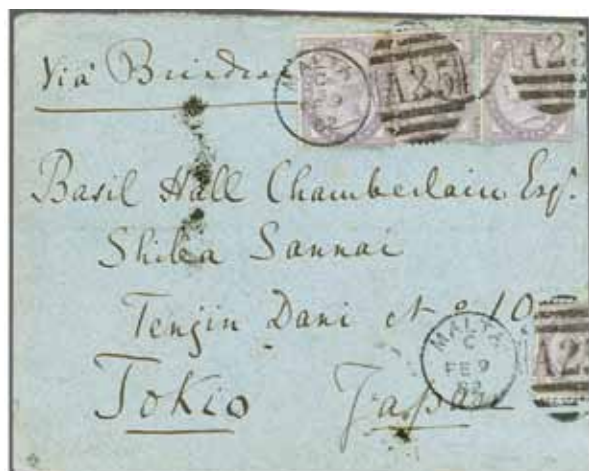 Via Brindisi
MALTA
A25
A2
Basil Hall Chamberlain Esqr.
Shiba Sannai
Tenjin Dani No 10
MALTA
C
FE 9
82
A25
Tokio Japan